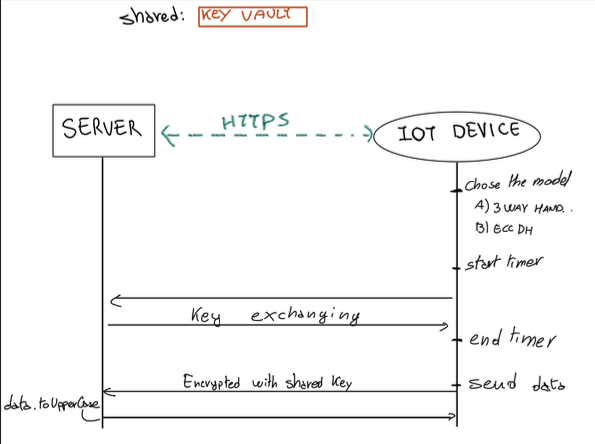 shared: KEY VAULT
SERVER
HTTPS
IOT DEVICE
chose the model
A) 3 WAY HAND.
B) ECC DH
start timer
Key exchanging
end timer
Encrypted with shared key
send data
data.toUpperCase